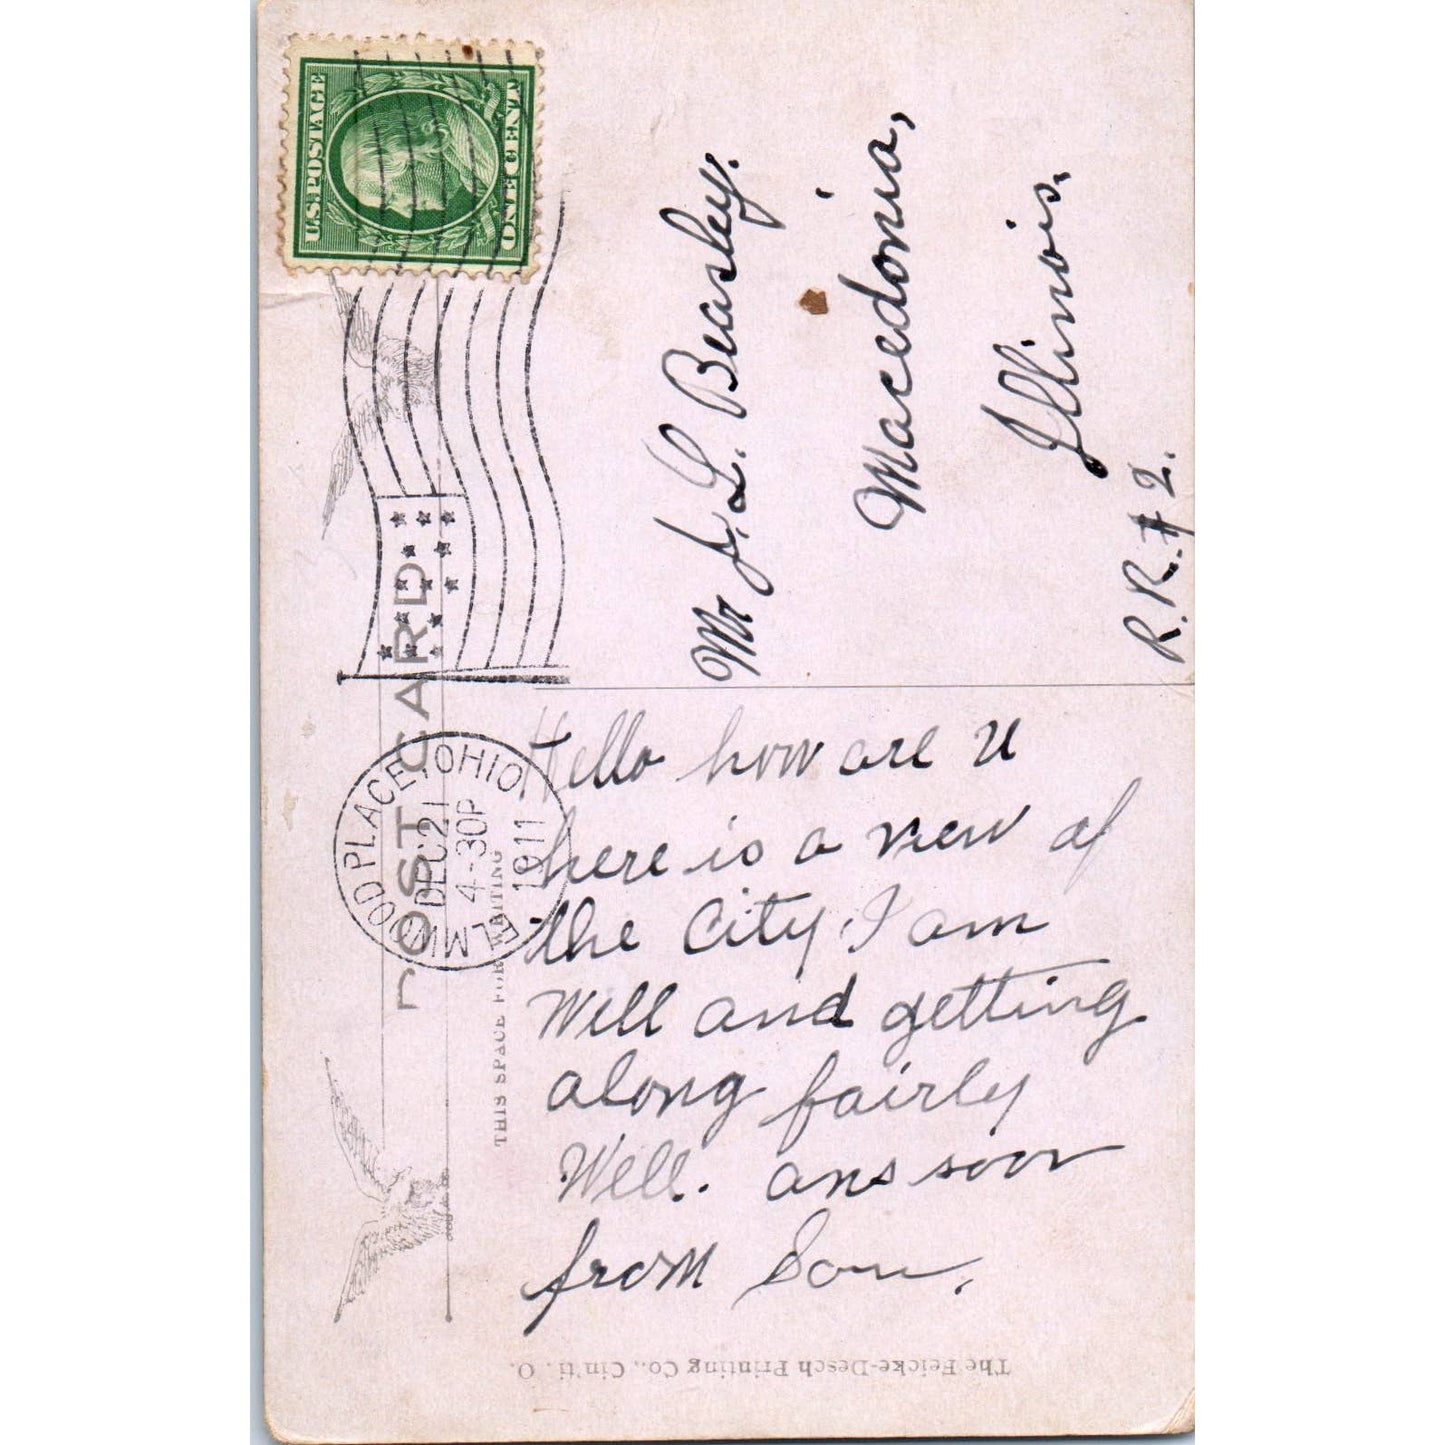 U.S. POSTAGE
ONE CENT
POST CARD
ELMWOOD PLACE, OHIO
DEC 21
4-30P
1911
THIS SPACE FOR WRITING
Mr J. L. Beasley.
Macedonia,
Illinois.
R.R. # 2.
Hello how are U
here is a view of
the City. I am
Well and getting
along fairly
Well. ans soon
from Son.
The Feicke-Desch Printing Co., Cin'ti. O.